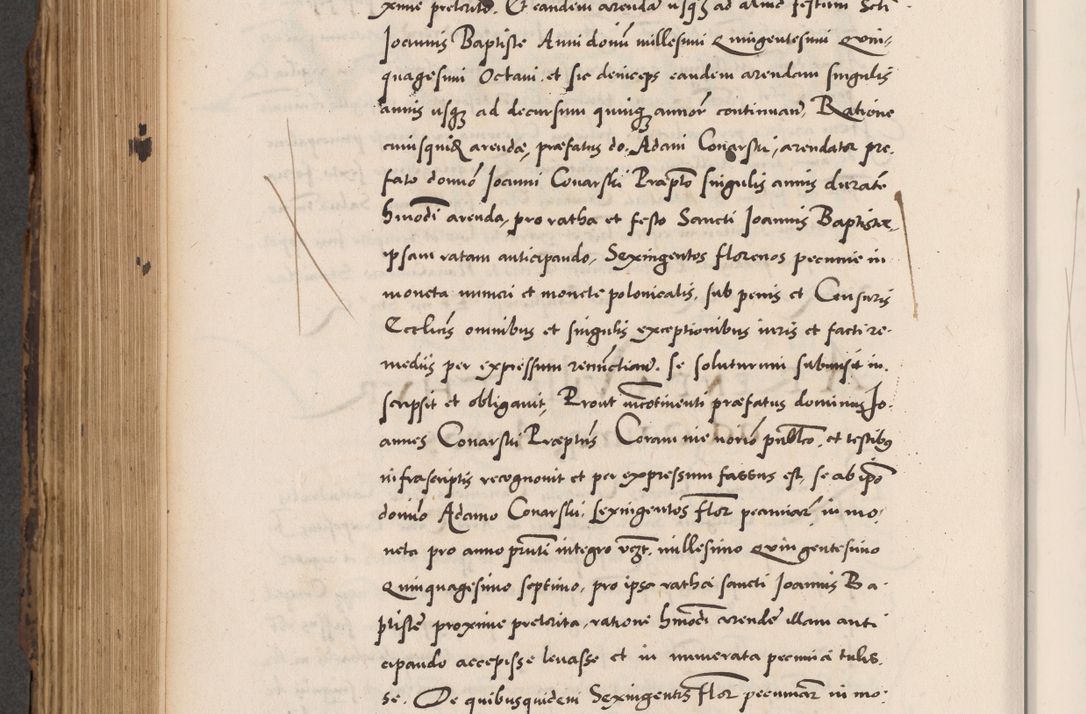 xime preterito. Et eandem arendã usq3 ad aliud festum Scti
Joannis Baptiste Anni domĩ millesimi Quingentesimi Quin-
quagesimi Octavi, et sic deniceps eandem arendam singulis
annis usq3 ad decursum quinq3 annor̃ continuan̄, Ratione
cuiusquid arendæ, præfatus do: Adam Conarski, arendator pre-
fato domiõ Joanni Conarski Præpto singulis annis durañte
hmõdi arenda, pro ratha et festo Sancti Joannis Baptistæ,
ipsam ratam anticipando, Sexingentos florenos pecuniæ in
moneta numeri et monete polonicalis, sub penis et Censuris
Ecclicis omnibus et singulis exceptionibus iuris et facti re-
mediis per expressum renũctian̄. se soluturum submisit in-
scripsit et obligavit, Prout incõtinenti præfatus dominus Jo-
annes Conarski Præptus Coram me notõ publco, et testibus
infrascriptis recognovit et per expressum fassus est, se ab ipõ
domiõ Adamo Conarski, sexingentos flor pecuniar̃ in mo-
neta pro anno p̃nti integro vcz̃t. millesimo Quingentesimo
Quinquagesimo septimo, pro ipsa ratha sancti Joannis Ba-
ptistæ proxime preterita, ratione hmõdi arende illam anti
cipando accepisse levasse et in numerata pecunia tulis-
se. De quibusquidem Sexingentis flor pecuniar̃ in mo-